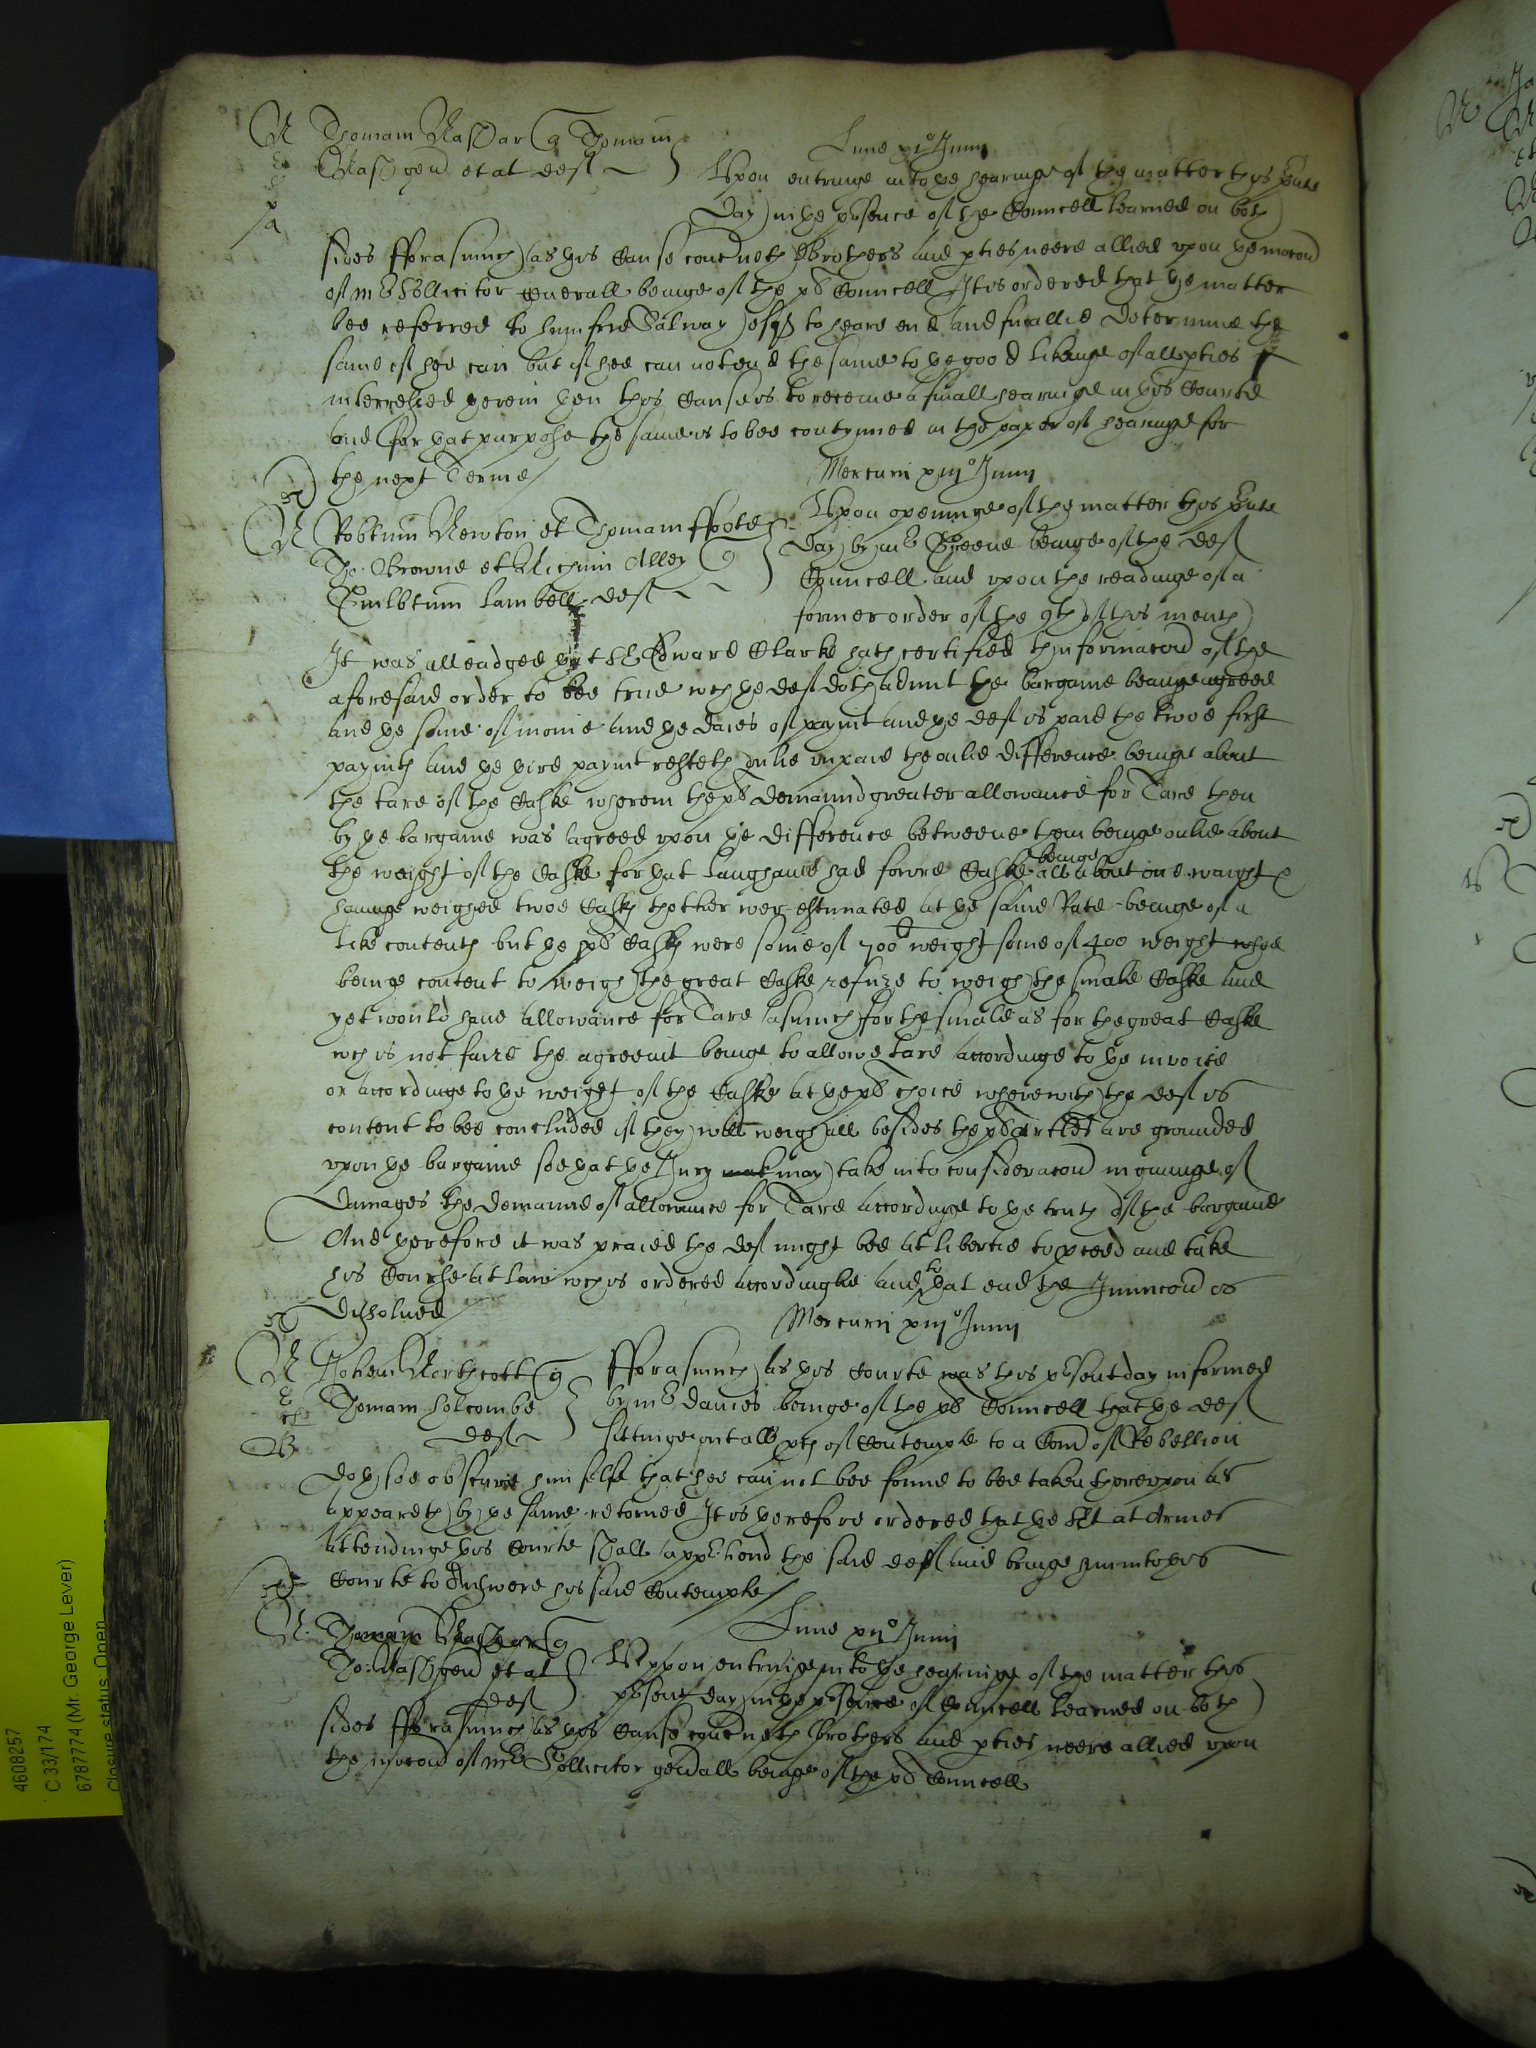 Thomam Nashar q Thomam
Nash gen et al deft
Lune xi° Junii
Upon entringe into ye hearinge of the matter this pnte
Day in ye psence of the Councell learned on both
sides fforasmuch as this Cause concneth Brothers and pties neere allied upon ye mocon
of mr Sollicitor Generall beinge of the pls Councell It is ordered that ye matter
bee referred to Humfrie Salway esqr to heare end and finallie Determine the
same if hee can but if hee can not end the same to ye good likinge of all pties
interressed herein then this Cause is to receive a finall hearinge in this Courte
and for yat purpose the same is to bee contynued in the paper of hearinge for
the next Terme
Mercurii xiii° Junii
Robtum Newton et Thomam ffoote
Tho: Browne et Richum Alley q
Guilbtum Lambell deft
Upon openinge of the matter this pnte
Day by mr Greene beinge of the def
Councell and upon the readinge of a
former order of the 9th of this month
It was alleadged yat Sr Edward Clarke hath certified thinformacon of the
aforesaid order to bee true wch ye deft doth admit the bargaine beinge agreed
and ye some of monie and ye daies of paymt and ye deft is paid the twoe first
paymts and ye third paymt resteth onlie unpaid the onlie difference beinge about
the tare of the Caske wherein the pls demaund greater allowance for Tare then
by ye bargaine was agreed upon ye difference betweene them beinge onlie about
the weight of the Caske for yat Langham had fowre Caske beinge all about one waight
havinge weighed twoe Caske thother wer estimated at ye same Rate beinge of a
like contents but ye pls Caske were some of 700 weight some of 400 weight whoe
beinge content to weigh the great Caske refuse to weigh the smale Caske and
yet would have allowance for Tare asmuch for the smale as for the great Caske
wch is not faire the agreemt beinge to allowe tare accordinge to ye invoice
or accordinge to ye weight of the Caske at ye pls choice wherewith the deft is
content to bee concluded if they will weigh all besides the pls artles are grounded
upon ye bargaine soe yat ye Jury may take into consideracon in givinge of
Damages the demaund of allowance for Tare accordinge to ye truth of the bargaine
And therefore it was praied the deft might bee at libertie to pceed and take
his Course at law wch is ordered accordinglie and to that end the Iniunccon is
Dissolved
Mercurii xiii° Junii
Johem Northcott q
Thomam Holcombe
deft
fforasmuch as this Courte was this psent day informed
by mr Davies beinge of the pls Councell that ye deft
sittinge out all pces of Contempte to a Comn of Rebellion
doth soe obscure himselfe that hee can not bee found to bee taken thereupon as
appeareth by ye same retorned It is therefore ordered that ye Sjt at Armes
attendinge this Courte shall apprhend the said deft and bringe him into this
Courte to Answere his said Contempte
Lune xi° Junii
Thomam Nashar q
Tho: Nash gen et al
deft
Uppon entringe into ye hearinge of the matter this
psent day in ye psence of Councell learned on both
sides fforasmuch as this Cause concneth Brothers and pties neere allied upon
the mocon of mr Sollicitor genall beinge of the pls Councell
4608257
C 33/174
6787774 (Mr. George Lever)
Closure status: Open